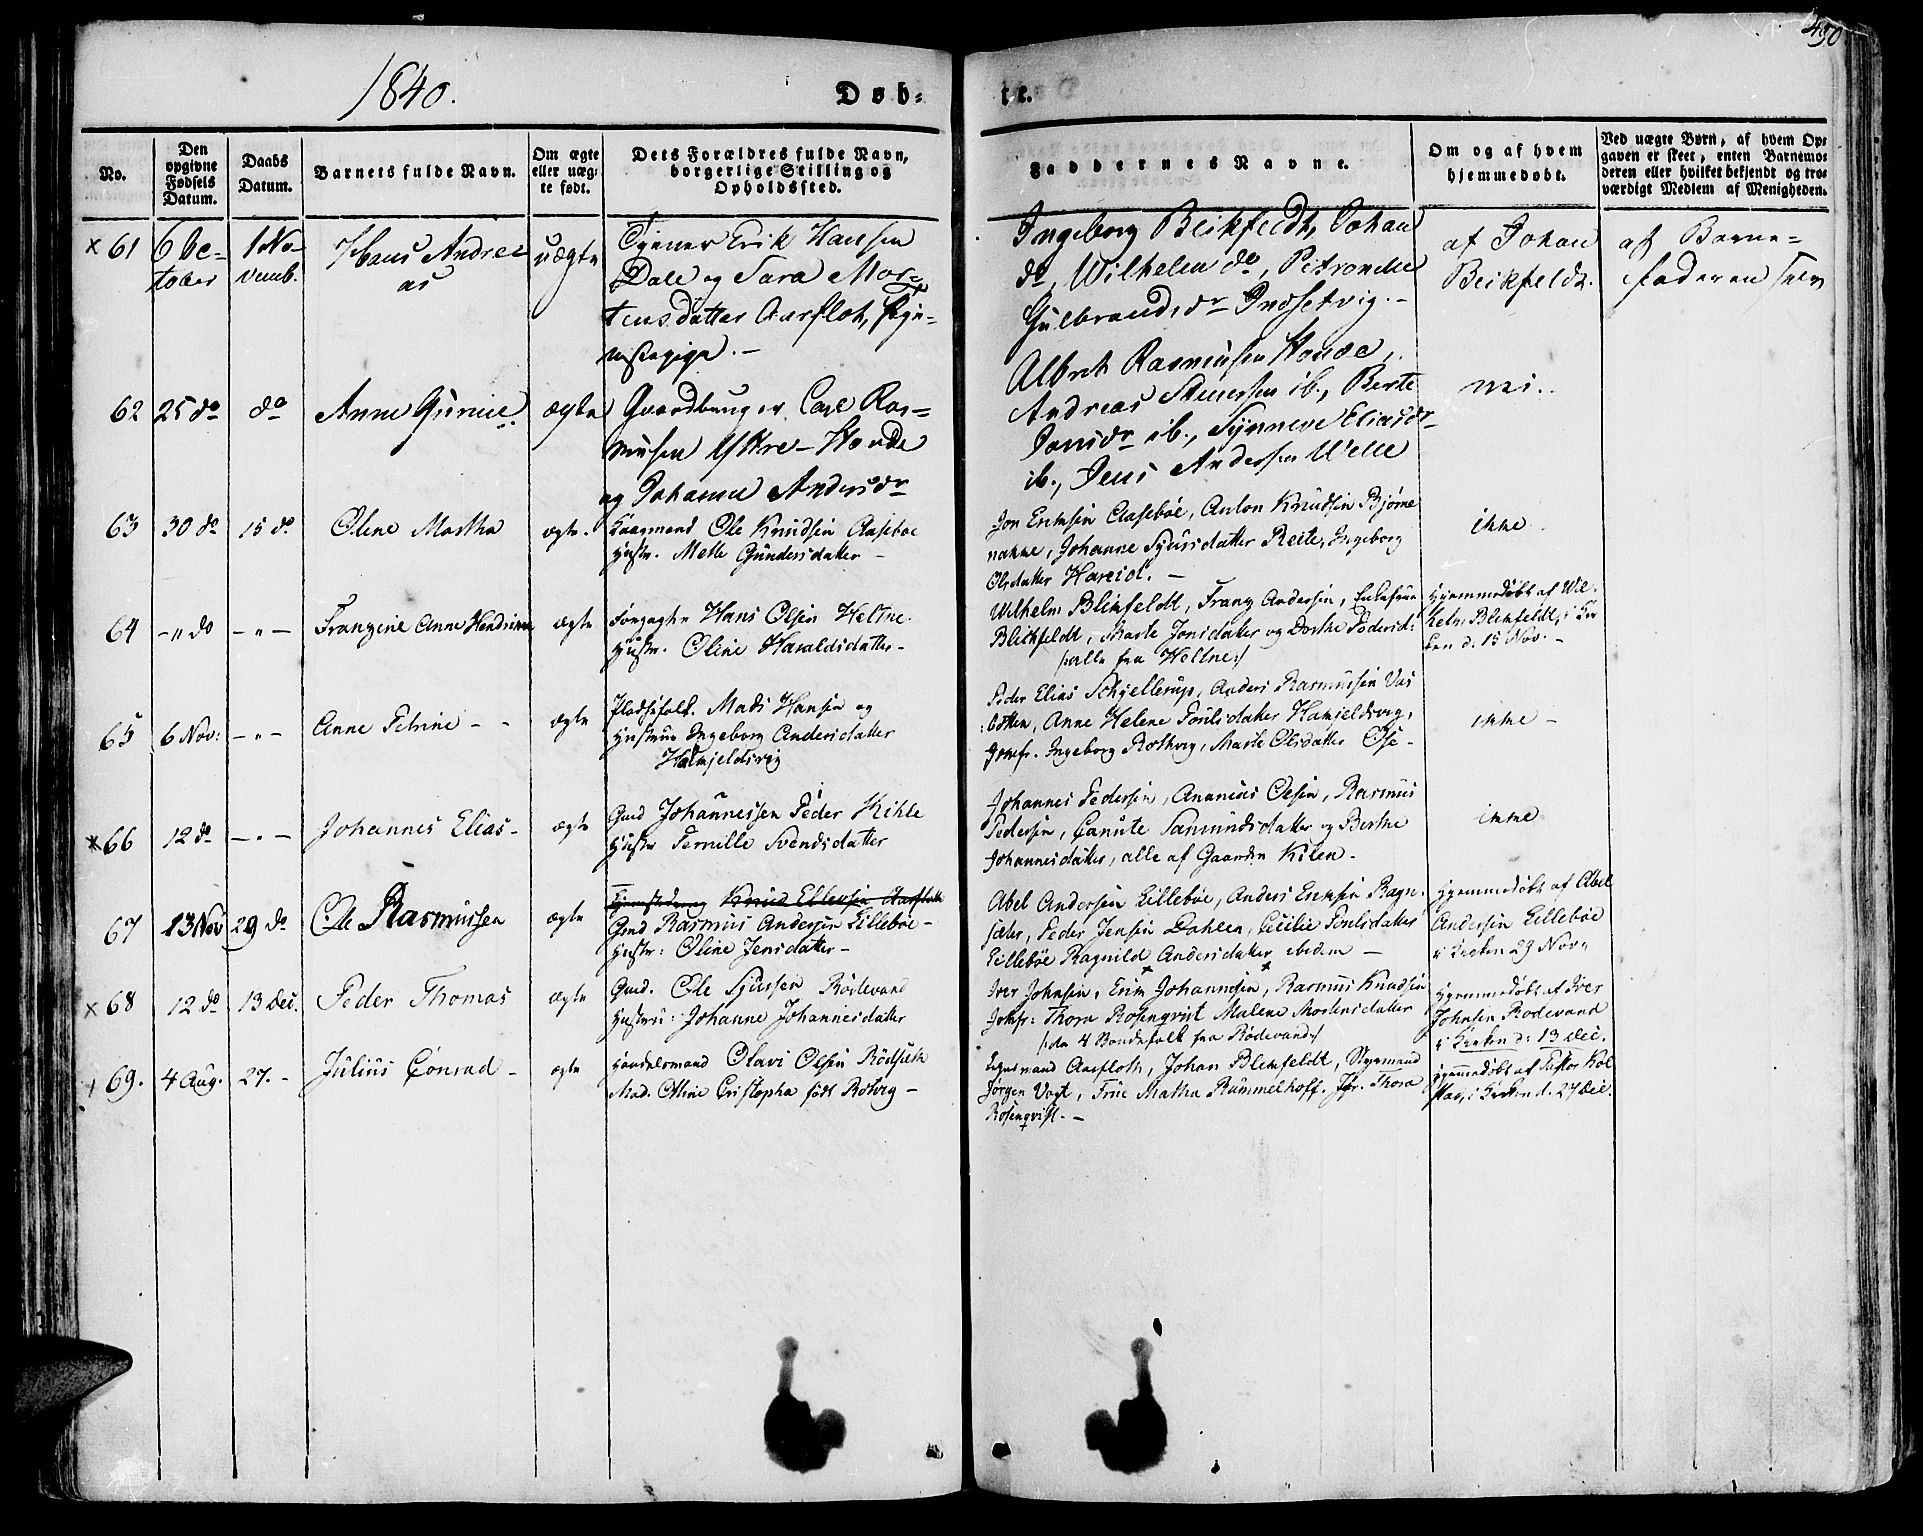 490
1840.
Døb-
te.
No.
Den opgivne Fødsels Datum.
Daabs Datum.
Barnets fulde Navn.
Om ægte eller uægte født.
Dets Forældres fulde Navn, borgerlige Stilling og Opholdssted.
Faddernes Navne.
Om og af hvem hjemmedøbt.
Ved uægte Børn, af hvem Opgaven er skeet, enten Barnemoderen eller hvilket bekjendt og troværdigt Medlem af Menigheden.
× 61 6 Oc- 1 No- Hans Andre- uægte Tjener Erik Hansen
tober vemb. as Dale og Sara Mor-
tensdatter Aarflot,
Ingeborg Blikfeldt, Johan
do, Wilhelm do, Petronelle
Gulbrandsdr Indsetvig.-
af Johan
Blikfeldt.
af Barne-
faderen selv
62 25 do do Anne Gurine. ægte Gaardbruger Carl Ras-
musen Yttre-Hovde
og Johanne Andersdr
Albret Rasmusen Hovde,
Andreas ib., Berte
Jonsdr ib., Synneve Eliasdr
ib., Jens Andersen Welle
nei.
63 30 do 15 do Oline Martha ægte. Ole Knudsen Aaseboe
Hustr. Mette Gundersdatter -
Jon Eriksen Aaseboe, Anton Knudsen Bjørne
nakke, Johanne Sjursdatter Reite, Ingeborg
Olsdatter Hareid. -
ikke
64 -"- do -"- Franzine Anne Hendrikke ægte Forpagtr Hans Olsen Heltne.
Hustr. Oline Haraldsdatter-
Wilhelm Blikfeldt, Franz Andersen,
Blikfeldt, Marte Jonsdatter og Dorthe Pedersd:
/:alle fra Heltne:/
Hjemmedøbt af Wil-
helm Blikfeldt, i Kir
ken d. 15 Nov. -
65 6 Nov: -"- Anne Petrine - - ægte Pladsfolk. Mads Hansen og
Hustrue Ingeborg Andersdatter
Hakjeldsvig
Peder Elias Schjellerup, Anders Rasmussen Vas
botten, Anne Helene Poulsdatter Hakjeldsvig,
Jomfr. Ingeborg Rotvig, Marte Olsdatter Ose-
ikke -
× 66 12 do -"- Johannes Elias- ægte Gmd Johannessen Peder Kihle
Hustr Pernille Svendsdatter
Johannes Pedersen, Ananias Olsen, Rasmus
Pedersen, Canute Samundsdatter og Berthe
Johannesdatter, alle af Gaarden Kilen-
ikke
67 13 Nov 29 do Ole Rasmussen ægte Knud Aarflot
Gmd Rasmus Andersen Lillebøe-
Hustr: Oline Jensdatter-
Abel Andersen Lillebøe, Anders Eriksen Ragn-
Peder Jensen Dahlen, Cecilie Poulsdatter
Lillebøe Ragnild Andersdatter ibidem -
Hjemmedøbt af Abel
Andersen Lillebøe
i Kirken 29 Nov.
× 68 12 do 13 Dec. Peder Thomas ægte Gmd. Ole Sjursen Rødevand
Hustru: Johanne Johannesdatter
Iver Johnsen, Erik Johannesen, Rasmus Knudsen
Jomfr: Thora Rosenqvist Malene Mortensdatter
/:de 4 Bondefolk fra Rødevand:/
Hjemmedøbt af Iver
Johnsen Rødevand
i Kirken d: 13 Dec.
+ 69. 4 Aug. 27.- Julius Conrad - ægte Handelsmand Olavi Olsen Rødseth
Mad. Oline Cristopha født Rotvig -
Lensmand Aarfloth, Johan Blikfeldt, Styrmand
Jørgen Vogt, Frue Matha Rummelhoff. Jfr. Thora
Rosenqvist. -
Hjemmedøbt af Pastor Kol
i Kirken d. 27 Dec.